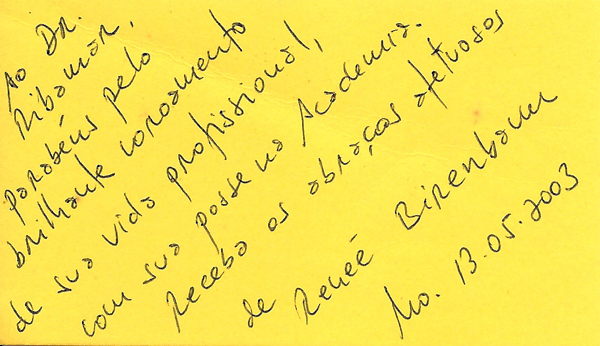 Ao Dr.
Ribamar,
parabéns pelo
brilhante coroamento
de sua vida profissional,
com sua posse na Academia.
Receba os abraços afetuosos
de Reneé Birenbaum
Mo. 13.05.2003